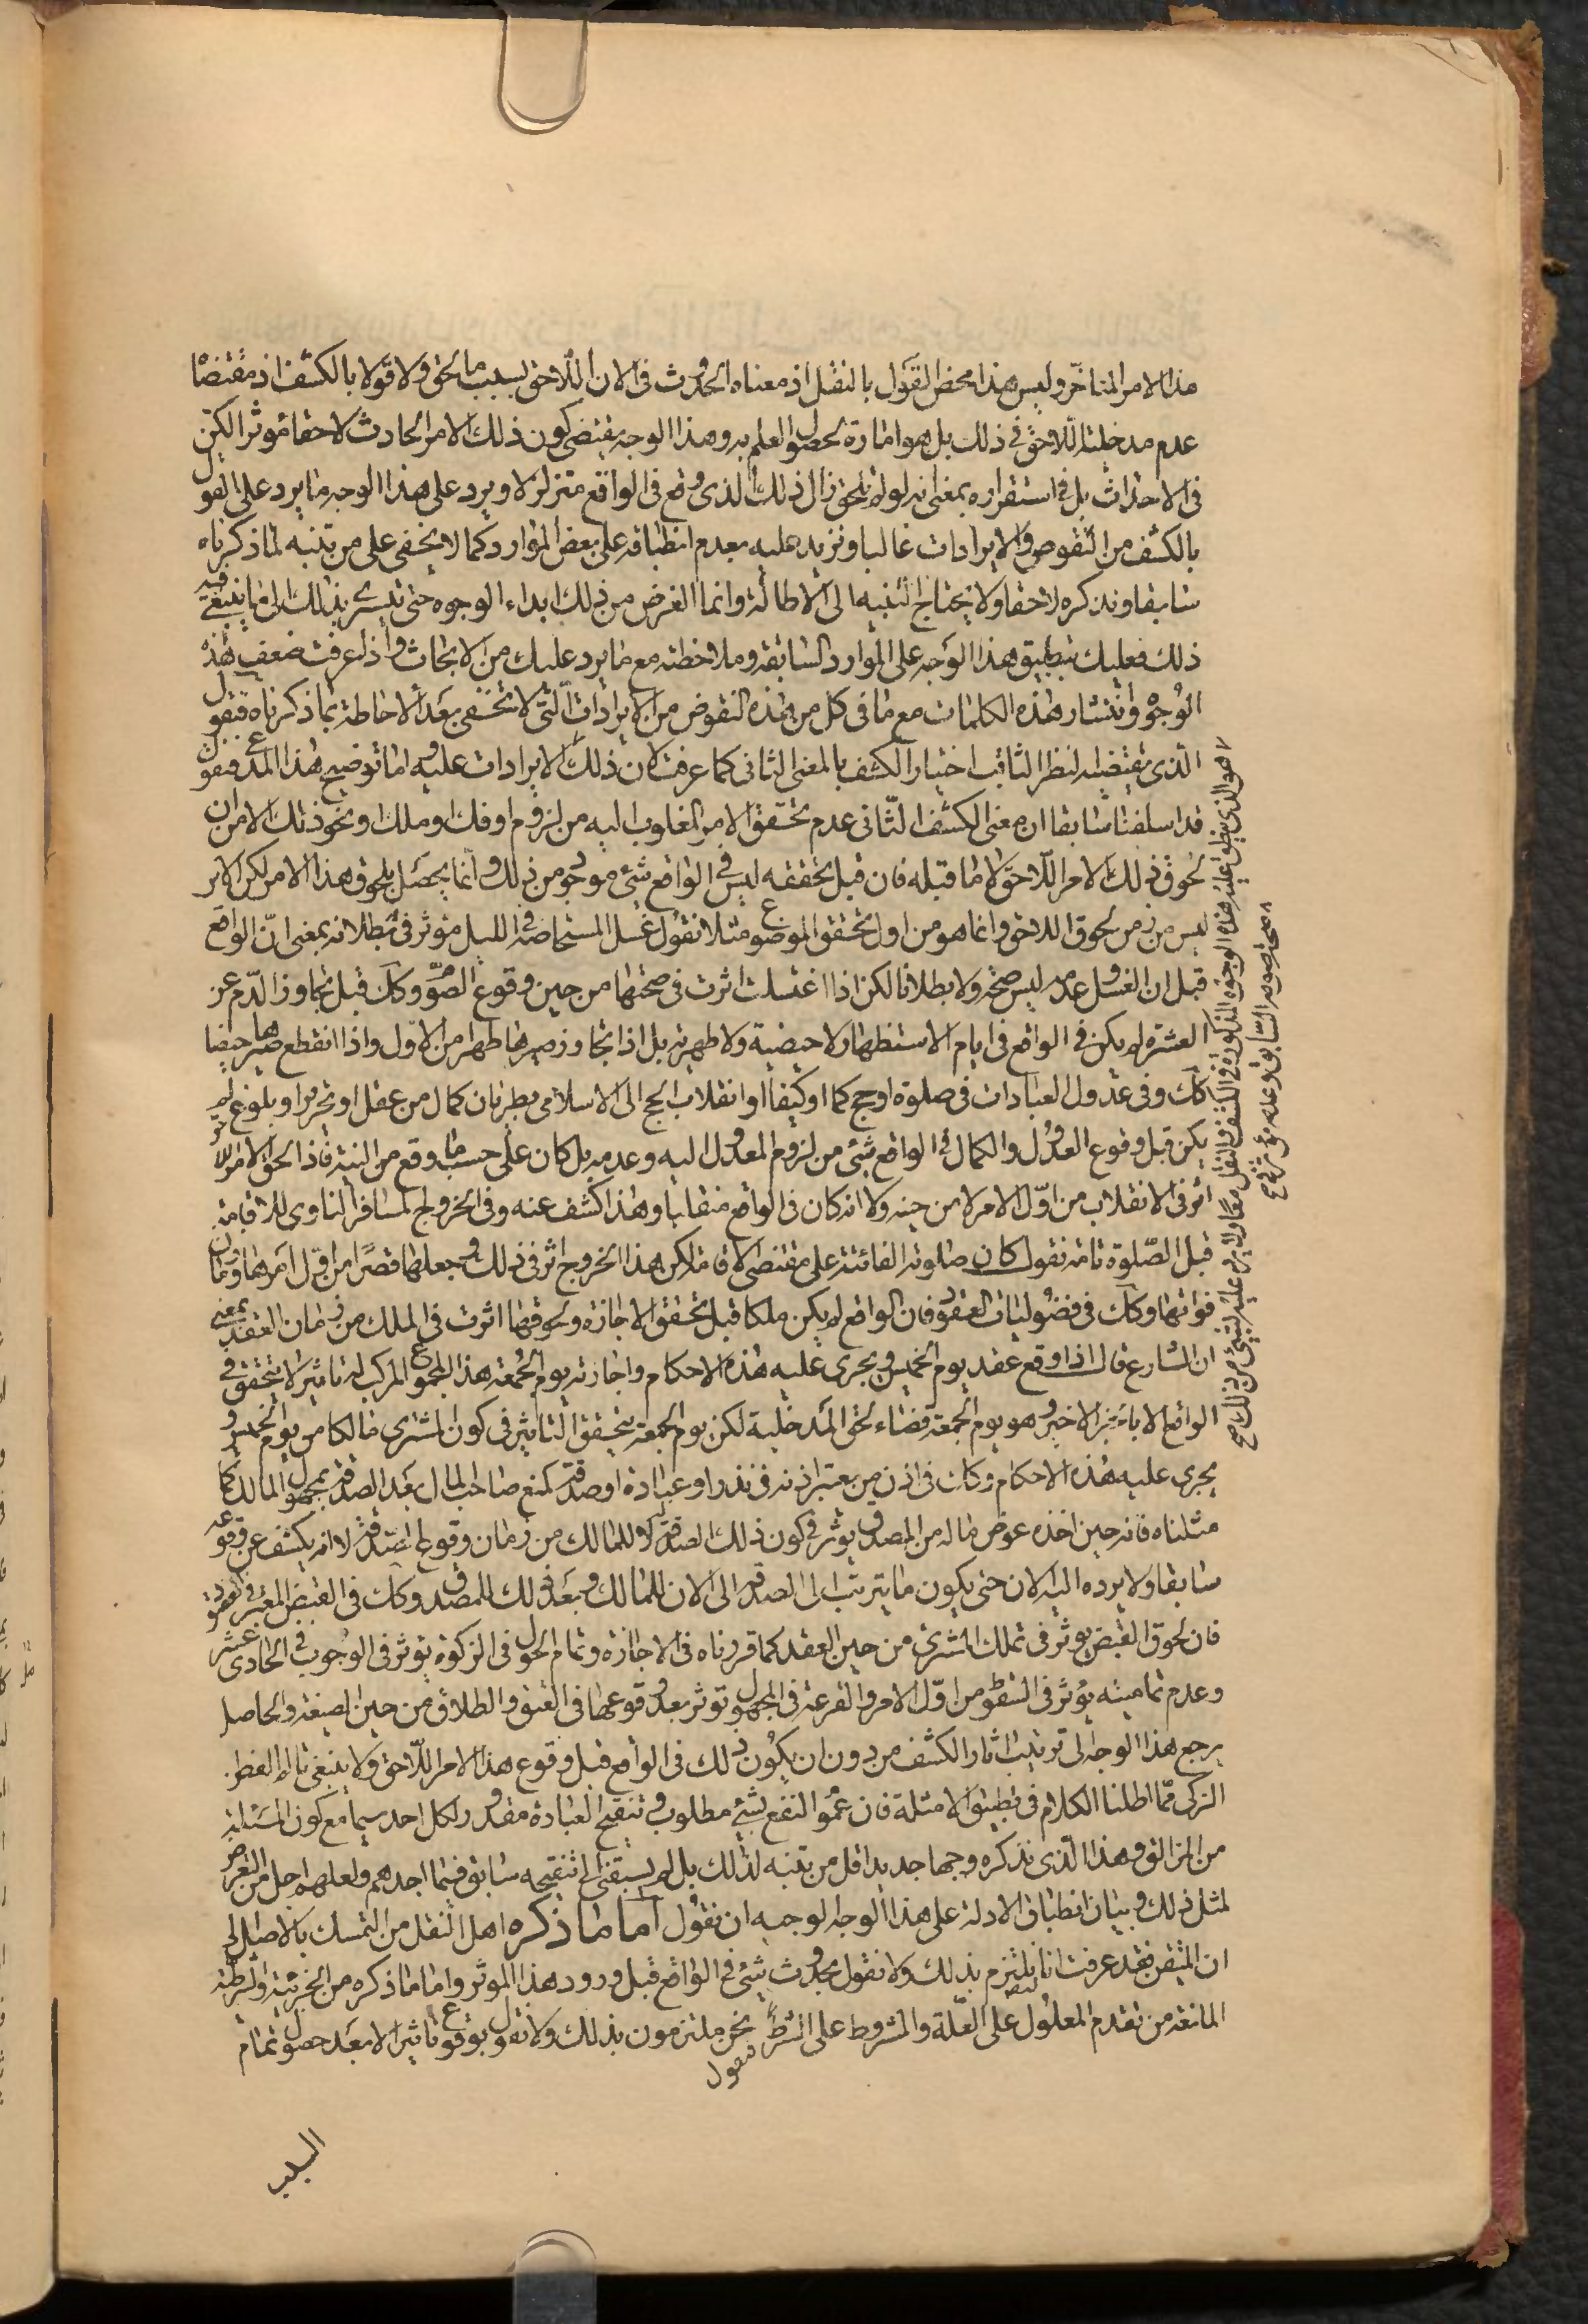 هذا الامر المتاخر وليس هذا محض القول بالنقل اذ معناه الحدوث فى الان اللاحق بسبب ما لحق ولا قولا بالكشف اذ مقتضاه
عدم مدخلية اللاحق فى ذلك بل هو امارة لحصول العلم به وهذا الوجه يقتضى كون ذلك الامر الحادث لاحقا مؤثرا لكن
فى الاحداث بل فى استقراره بمعنى انه لو لم يلحق زال ذلك الذى وقع فى الواقع متزلزلا ويرد على هذا الوجه ما يرد على القول
بالكشف من النقوض والايرادات غالبا ونزيد عليه بعدم انطباقه على بعض الموارد كما لا يخفى على من تنبه لما ذكرناه
سابقا ونذكره لاحقا ولا يحتاج التنبيه الى الاطالة وانما الغرض من ذلك ابداء الوجوه حتى بذلك الى ما ينبغى فيه
ذلك فعليك بتطبيق هذا الوجه على الموارد السابقة وملاحظته مع ما يرد عليك من الابحاث واذ عرفت ضعف هذه
الوجوه وانتشار هذه الكلمات مع ما فى كل من هذه النقوض من الايرادات التى لا تخفى بعد الاحاطة بما ذكرناه فنقول
الذى يقتضيه النظر الثاقب اختيار الكشف بالمعنى الثانى كما عرفت لان ذلك لا يرادات عليه واما توضيح هذا المدعى فنقول
قد اسلفنا سابقا ان معنى الكشف الثانى عدم تحقق الامر المغلوب اليه من لزوم او فك او ملك او نحو ذلك الا من ان
لحوق ذلك الامر اللاحق لا ما قبله فان قبل تحققه ليس فى الواقع شئ موجود من ذلك وانما يحصل بلحوق هذا الامر لكن الاثر
ليس من زمن لحوق اللاحق وانما هو من اول تحقق الموضوع مثلا نقول غسل المستحاضة فى الليل مؤثر فى بطلانه بمعنى ان الواقع
قبل ان الغسل وعدمه ليس صحة ولا بطلانا لكن اذا اغتسلت اثرت فى صحتها من حين وقوع الصوم وكك قبل تجاوز الدم عن
العشرة لم يكن فى الواقع فى ايام الاستظهار لا حيضية ولا طهرية بل اذا تجاوز صيرها طهرا من الاول واذا انقطع صيرها حيضا
كك وفى عدول العبادات فى صلوة او حج كما او كيفا او انقلاب الحج الى الاسلامى بطريان كمال من عقل او تحرير او بلوغ لم
يكن قبل وقوع العدول والكمال فى الواقع شئ من لزوم المعدول اليه وعدمه بل كان على حسب ما وقع من النية فاذا لحق الامر اللاحق
اثر فى الانقلاب من اول الامر لا من حينه ولا انه كان فى الواقع منقلبا وهذا كشف عنه وفى الخروج لمسافر الناوى للاقامة
قبل الصلوة تامة نقول كان صلوته الفائتة على مقتضى الاقامة لكن هذا الخروج اثر فى ذلك وجعلها قصرا من اول امرها وزمان
فواتها وكك فى فضوليات العقود فان الواقع لم يكن ملكا قبل تحقق الاجازة ولحوقها اثرت فى الملك من زمان العقد بمعنى
ان الشارع قال اذا وقع عقد يوم الخميس ويجرى عليه هذه الاحكام واجازته يوم الجمعة هذا المجموع المركب له تاثير لا يتحقق فى
الواقع الا بالجزء الاخير وهو يوم الجمعة قضاء لحق المدخلية لكن يوم الجمعة يتحقق التاثير فى كون المشترى مالكا من يوم الخميس و
يجرى عليه هذه الاحكام وكك فى اذن من يعتبر اذنه فى نذر او عبادة او صدقة كمنع صاحب المال بعد الصدقة بمجهول المالك كما
مثلناه فانه حين اخذه عوض ماله من المصدق يؤثر فى كون ذلك الصدقة كلا للمالك من زمان وقوع الصدقة لا انه يكشف عن وقوعه
سابقا ولا يرده اليه الان حتى يكون ما يترتب على الصدقة الى الان للمالك وبعد ذلك للمصدق وكك فى القبض المعتبر فى العقود
فان لحوق القبض يؤثر فى تملك المشترى من حين العقد كما قررناه فى الاجازة وتمام الحول فى الزكوة يؤثر فى الوجوب فى الحادى عشر
وعدم تماميته يؤثر فى السقوط من اول الامر والقرعة فى المجهول تؤثر بعد وقوعها فى العتق والطلاق من حين الصيغة والحاصل
يرجع هذا الوجه الى ترتيب اثار الكشف من دون ان يكون ذلك فى الواقع قبل وقوع هذا الامر اللاحق ولا ينبغى
الزكى مما اطلنا الكلام فى تطبيق الامثلة فان عموم النفع بشئ مطلوب وتنقيح العبادة مقدور لكل احد سيما مع كون المسئلة
من المزالق وهذا الذى نذكره وجها جديدا قل من تنبه لذلك بل لم يسبقنى الى تنقيحه سابق فيما اجدهم ولعلهم اجل من التعرض
لمثل ذلك وبيان انطباق الادلة على هذا الوجه الوجيه ان نقول اما ما ذكره اهل النقل من التمسك بالاصل الى
ان المتيقن فقد عرفت انا نلتزم بذلك ولا نقول بحدوث شئ فى الواقع قبل ورود هذا المؤثر واما ما ذكره من الجزئية والشرطية
المانعة من تقدم المعلول على العلة والمشروط على الشرط فنقول نحن ملتزمون بذلك ولا نقول بوقوع تاثير الا بعد حصول تمام
السبب
هو الذى ينطبق عليه هذه الوجوه المذكورة فى الكشف والنقل معا ولا يرد عليه شئ من ذلك صح